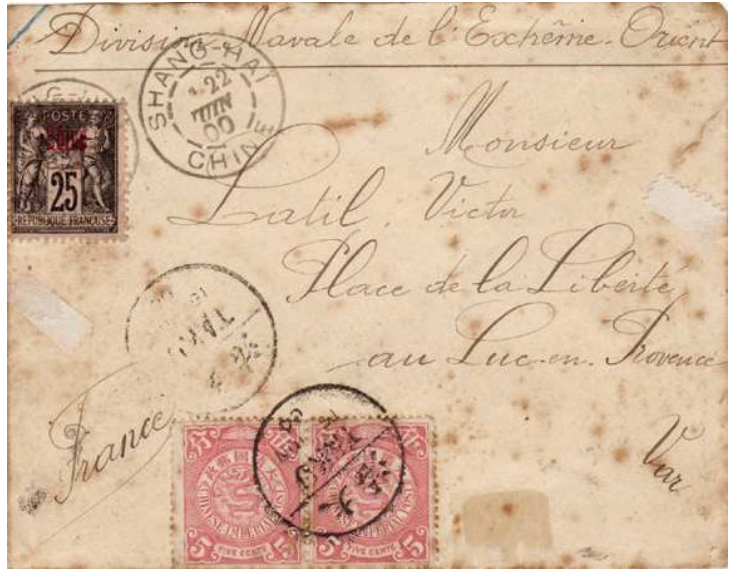 Division Navale de l'Extrême-Orient
SHANG-HAI
22
JUIN
00
CHINE
POSTE
Chine
25
REPUBLIQUE FRANÇAISE
Monsieur
Latil, Victor
Place de la Liberté
au Luc-en-Provence
Var
France
TAKU
大
TAKU
大
CHINESE IMPERIAL POST
5 FIVE CENTS 5
CHINESE IMPERIAL POST
5 FIVE CENTS 5